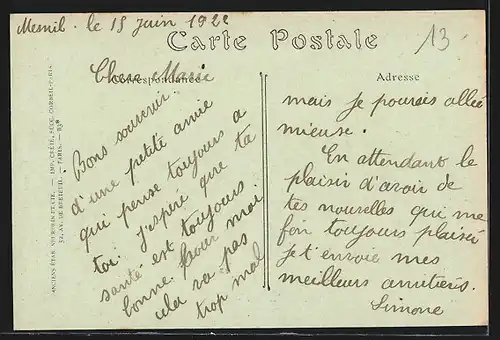 Mesnil. le 15 juin 1922
Carte Postale
13
Correspondance
Adresse
Chere Marie
Bons souvenir
d'une petite amie
qui pense toujours a
toi. j'espère que ta
santé est toujours
bonne. Pour moi
cela va pas
trop mal
mais je pourais allee
mieuse.
En attendant le
plaisir d'avoir de
tes nouvelles qui me
fon toujours plaisir
je t'envoie mes
meilleurs amitiéris.
Simone
ANCIENS ETAB. NEURDEIN ET CIE. — IMP. CRÉTÉ, SUCC. CORBEIL-PARIS
52, AV. DE BRETEUIL — PARIS. —